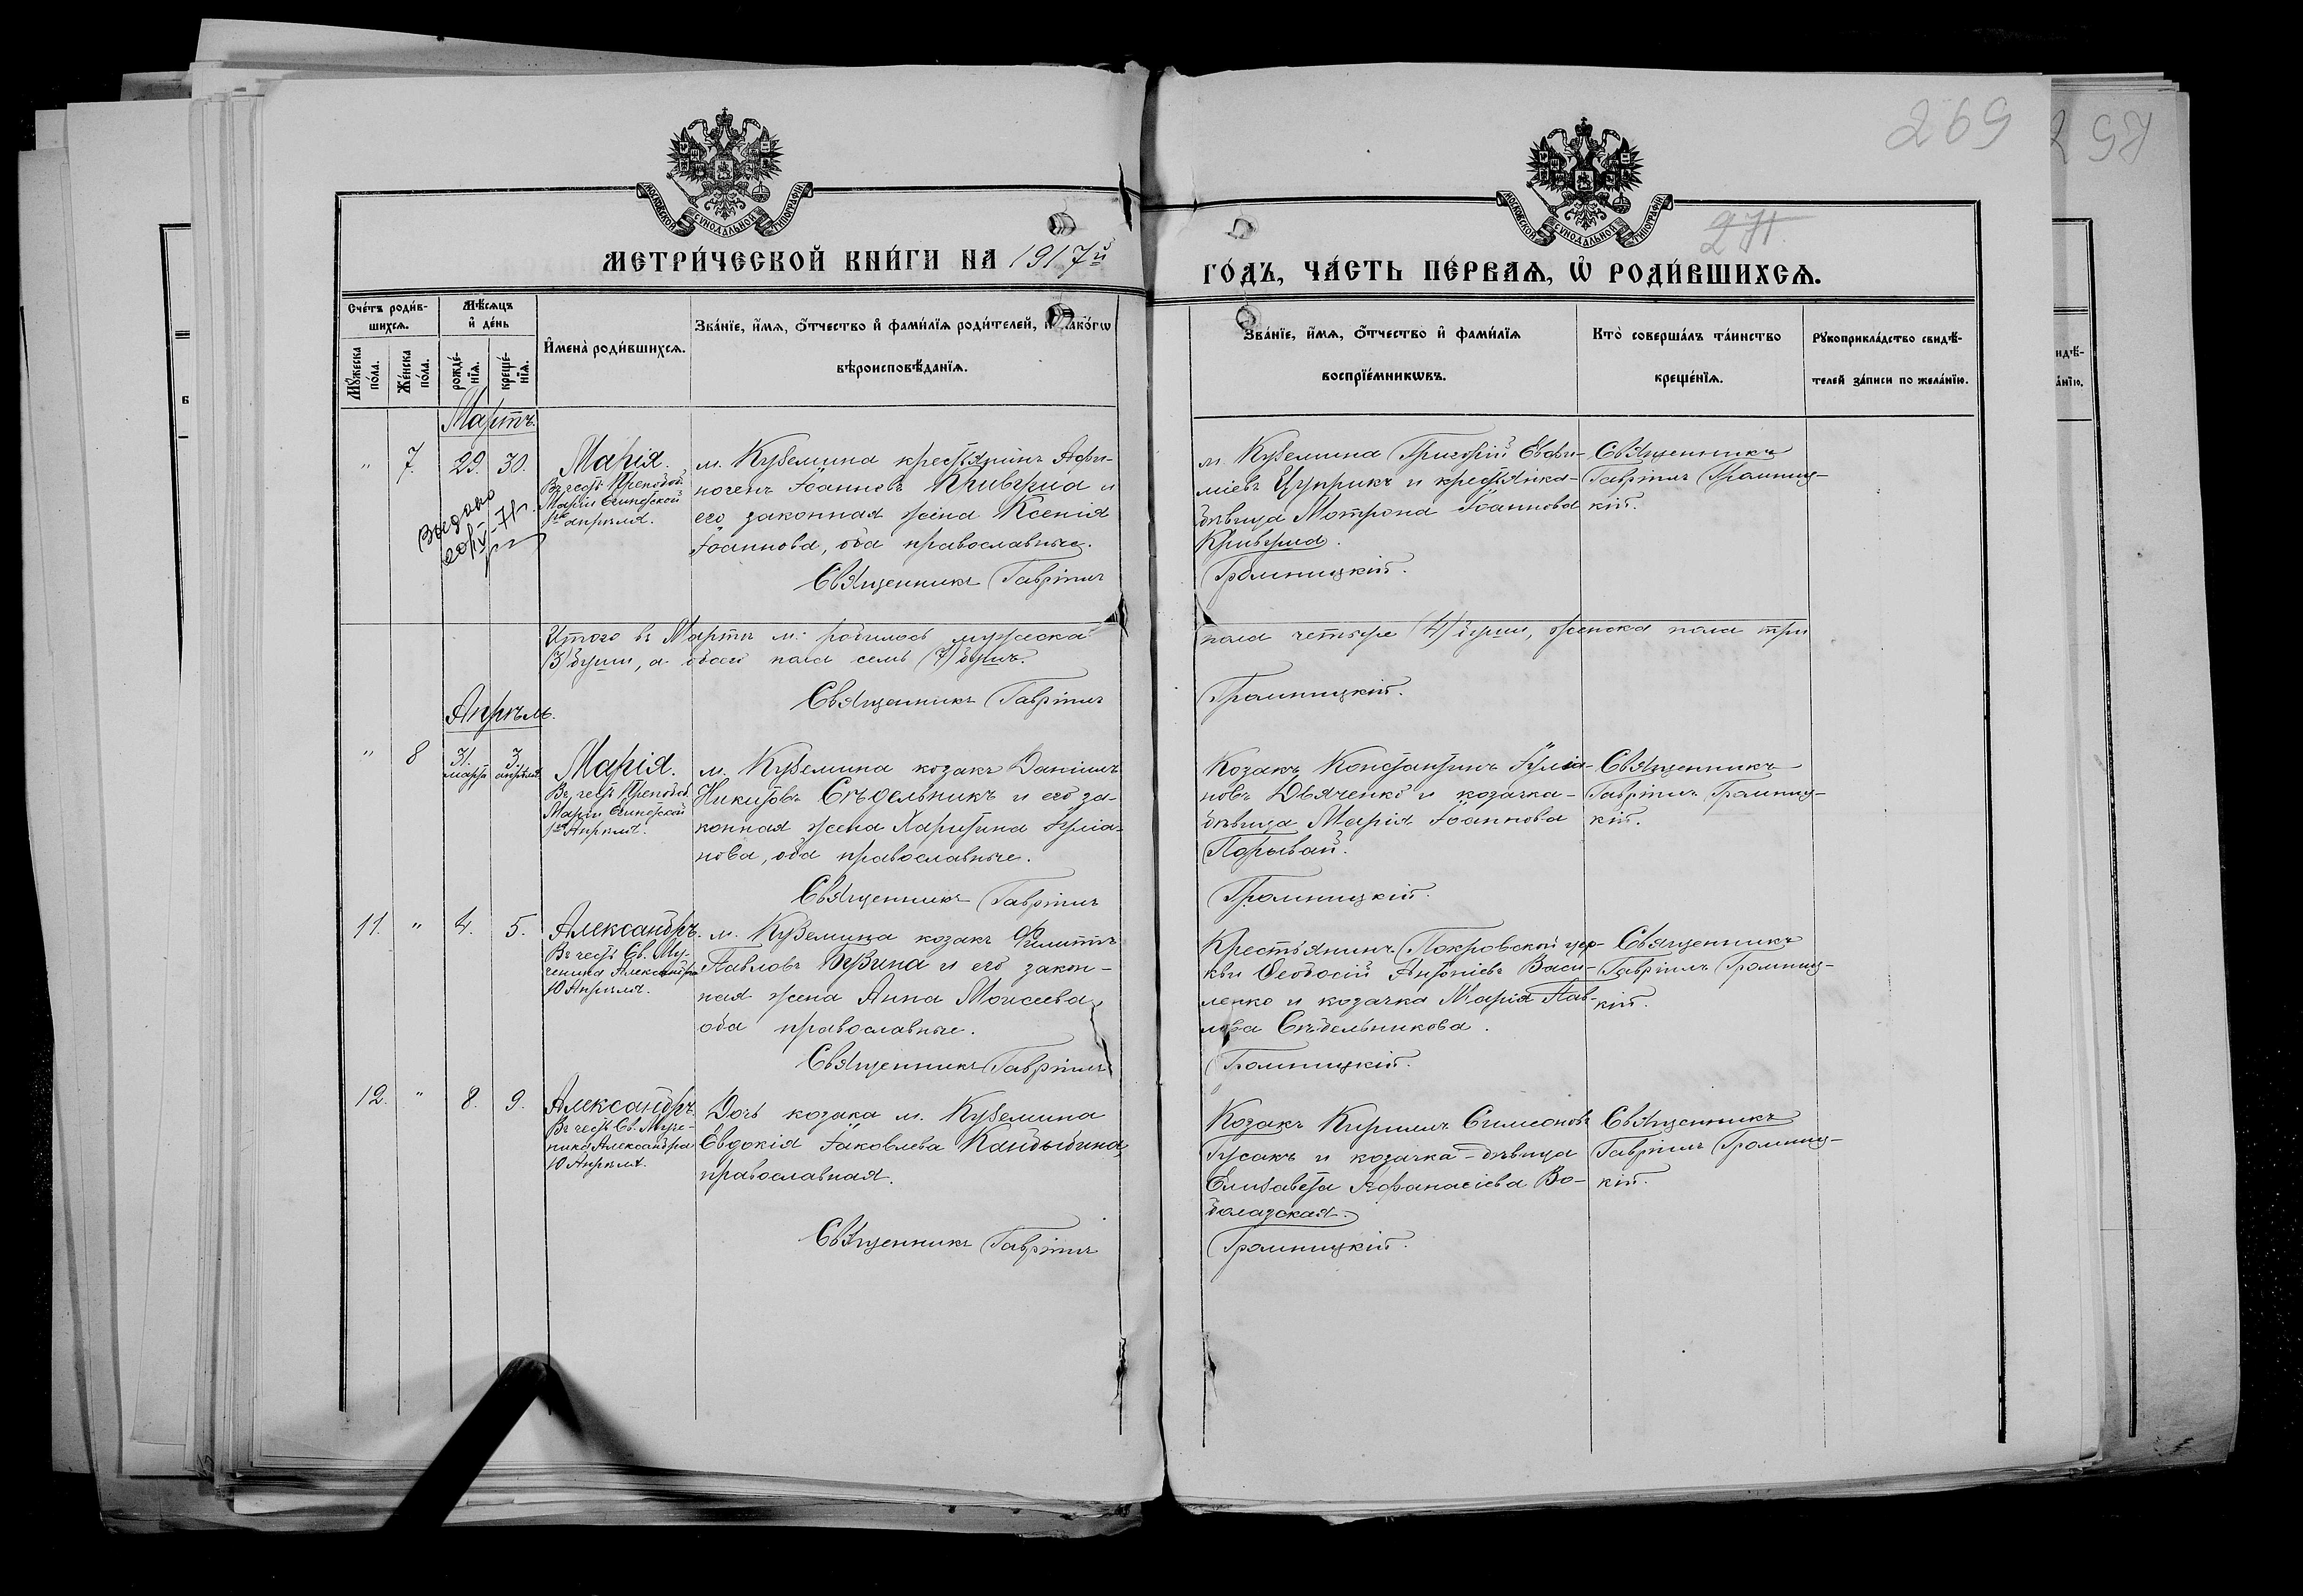 269
298
271
МОСКОВСКОЙ СѴНОДАЛЬНОЙ ТИПОГРАФІИ
МОСКОВСКОЙ СѴНОДАЛЬНОЙ ТИПОГРАФІИ
МЕТРИ́ЧЕСКОЙ КНИ́ГИ НА 1917й
ГО́ДЪ, ЧА́СТЬ ПЕ́РВАѦ, Ѡ҆ РОДИ́ВШИХСѦ.
Сче́тъ роди́в-
шихсѧ.
Мꙋ́жеска
по́ла.
Же́нска
по́ла.
Мѣ́сѧцъ
и҆ де́нь
рожде́-
нїѧ.
креще́-
нїѧ.
И҆мена̀ роди́вшихсѧ.
Зва́нїе, и҆́мѧ, ѻ҆́тчество и҆ фами́лїѧ роди́телей, и҆ како́гѡ
вѣроисповѣ́данїѧ.
Зва́нїе, и҆́мѧ, ѻ҆́тчество и҆ фами́лїѧ
воспрїе́мникѡвъ.
Кто̀ соверша́лъ та́инство
креще́нїѧ.
Рꙋкоприкла́дство свидѣ́-
телей за́писи по жела́нїю.
Мартъ.
" 7. 29. 30.
Марія.
Въ честь Преподоб.
Маріи Египетской
1го апрѣля.
м. Куземина крестьянинъ
Іоанновъ Кривуша и
его законная жена Ксенія
Іоаннова, оба православные.
Священникъ Гавріилъ
м. Куземина Григорій Евфи-
міевъ Цуприкъ и крестьянка-
дѣвица Мотрона Іоаннова
Кривуша.
Громницкій.
Священникъ
Гавріилъ Громниц-
кій.
Итого въ Мартѣ м. родилось мужеска
пола четыре (4) души, женска пола три
(3) души, а обоего пола семь (7) душъ.
Священникъ Гавріилъ
Громницкій.
Апрѣль.
" 8 31. марта 3. апрѣля
Марія.
Въ честь Преподоб.
Маріи Египетской
1го Апрѣля.
м. Куземина козакъ Даніилъ
Никитовъ Сѣдельникъ и его за-
конная жена Харитина Іуліа-
нова, оба православные.
Священникъ Гавріилъ
Козакъ Константинъ Іуліа-
новъ Дьяченко и козачка-
дѣвица Марія Іоаннова
Порывай.
Громницкій.
Священникъ
Гавріилъ Громниц-
кій.
11. " 4. 5.
Александръ.
Въ честь Св. Му-
ченика Александра
10 Апрѣля.
м. Куземина козакъ Филиппъ
Павловъ Бузина и его закон-
ная жена Анна Моисеева,
оба православные.
Священникъ Гавріилъ
Крестьянинъ Покровской цер-
кви Ѳеодосій Антоніевъ Васи-
ленко и козачка Марія Пав-
лова Сѣдельникова.
Громницкій.
Священникъ
Гавріилъ Громниц-
кій.
12. " 8. 9.
Александръ.
Въ честь Св. Муче-
ника Александра
10 Апрѣля.
Дочь козака м. Куземина
Евдокія Іаковлева Кандыбина,
православная.
Священникъ Гавріилъ
Козакъ Кириллъ Симеоновъ
Гусакъ и козачка-дѣвица
Елизавета Афанасіева Во-
долазская.
Громницкій.
Священникъ
Гавріилъ Громниц-
кій.